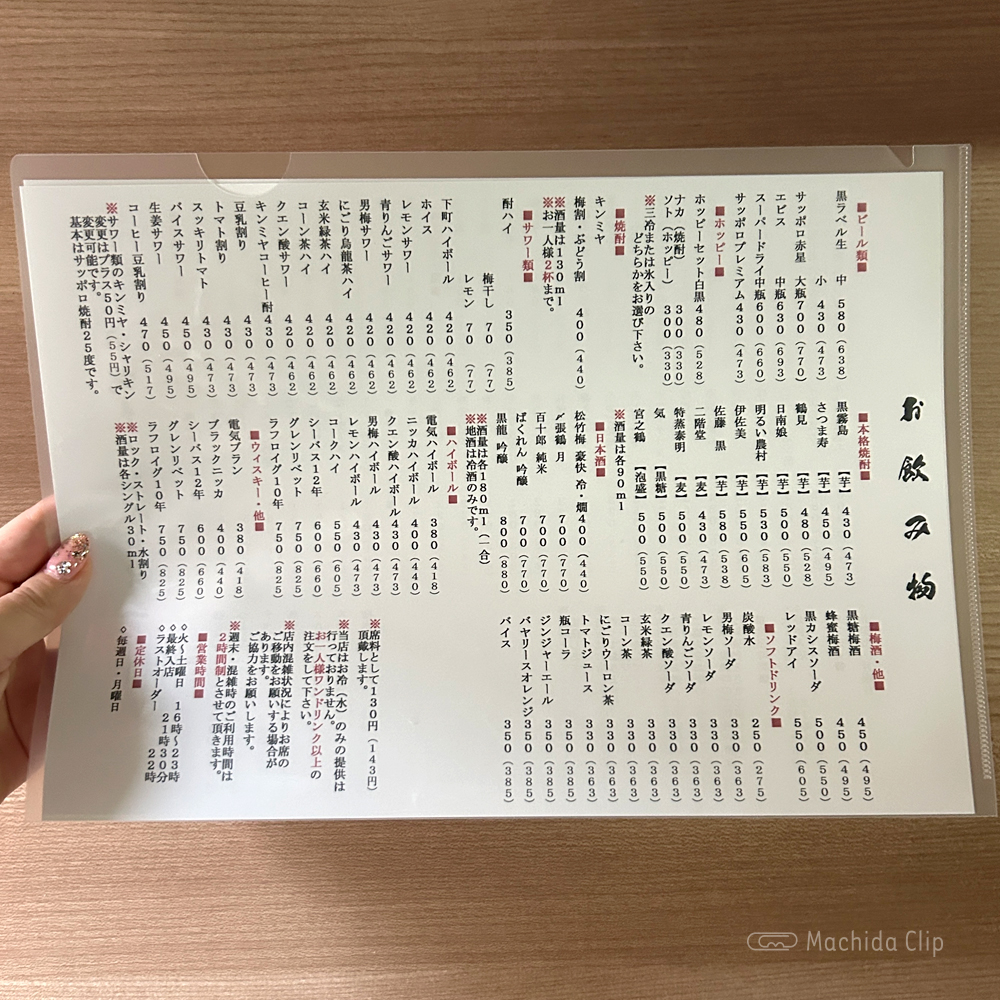 お飲み物
■ビール類■
黒ラベル生 中 580(638)
小 430(473)
サッポロ赤星 大瓶700(770)
エビス 中瓶630(693)
スーパードライ中瓶600(660)
サッポロプレミアム430(473)
■ホッピー■
ホッピーセット白黒480(528)
ナカ(焼酎) 300(330)
ソト(ホッピー) 300(330)
※三冷または氷入りの
どちらかをお選び下さい。
■焼酎■
キンミヤ
梅割・ぶどう割 400(440)
※酒量は130ml
※お一人様2杯まで。
■サワー類■
酎ハイ 350(385)
梅干し 70(77)
レモン 70(77)
下町ハイボール 420(462)
ホイス 420(462)
レモンサワー 420(462)
青りんごサワー 420(462)
男梅サワー 420(462)
にごり烏龍茶ハイ 420(462)
玄米緑茶ハイ 420(462)
コーン茶ハイ 420(462)
クエン酸サワー 420(462)
キンミヤコーヒー酎430(473)
豆乳割り 430(473)
トマト割り 430(473)
スッキリトマト 430(473)
バイスサワー 450(495)
生姜サワー 450(495)
コーヒー豆乳割り 470(517)
※サワー類のキンミヤ・シャリキン
変更はプラス50円(55円)で
変更可能です。
基本はサッポロ焼酎25度です。
■本格焼酎■
黒霧島 【芋】 430(473)
さつま寿 【芋】 450(495)
鶴見 【芋】 480(528)
日南娘 【芋】 500(550)
明るい農村 【芋】 530(583)
伊佐美 【芋】 550(605)
佐藤 黒 【芋】 580(538)
二階堂 【麦】 430(473)
特蒸泰明 【麦】 500(550)
気 【黒糖】 500(550)
宮之鶴 【泡盛】 500(550)
※酒量は各90ml
■日本酒■
松竹梅 豪快 冷・燗400(440)
〆張鶴 月 700(770)
百十郎 純米 700(770)
ばくれん 吟醸 700(770)
黒龍 吟醸 800(880)
※酒量は各180ml(一合)
※地酒は冷酒のみです。
■ハイボール■
電気ハイボール 380(418)
ニッカハイボール 400(440)
クエン酸ハイボール 430(473)
男梅ハイボール 430(473)
レモンハイボール 430(473)
コークハイ 550(605)
シーバス12年 600(660)
グレンリベット 750(825)
ラフロイグ10年 750(825)
■ウィスキー・他■
電気ブラン 380(418)
ブラックニッカ 400(440)
シーバス12年 600(660)
グレンリベット 750(825)
ラフロイグ10年 750(825)
※ロック・ストレート・水割り
※酒量は各シングル30ml
■梅酒・他■
黒糖梅酒 450(495)
蜂蜜梅酒 450(495)
黒カシスソーダ 500(550)
レッドアイ 550(605)
■ソフトドリンク■
炭酸水 250(275)
男梅ソーダ 330(363)
レモンソーダ 330(363)
青りんごソーダ 330(363)
クエン酸ソーダ 330(363)
玄米緑茶 330(363)
コーン茶 330(363)
にごりウーロン茶 330(363)
トマトジュース 350(385)
瓶コーラ 350(385)
ジンジャーエール 350(385)
バヤリースオレンジ350(385)
バイス 350(385)
※席料として130円(143円)
頂戴します。
※当店はお冷(水)のみの提供は
行っておりません。
お一人様ワンドリンク以上の
注文をして下さい。
※店内混雑状況によりお席の
ご移動をお願いする場合が
あります。
ご協力をお願いします。
※週末・混雑時のご利用時間は
2時間制とさせて頂きます。
■営業時間■
◇火～土曜日 16時～23時
◇最終入店 21時30分
◇ラストオーダー 22時
■定休日■
◇毎週日・月曜日
Machida Clip